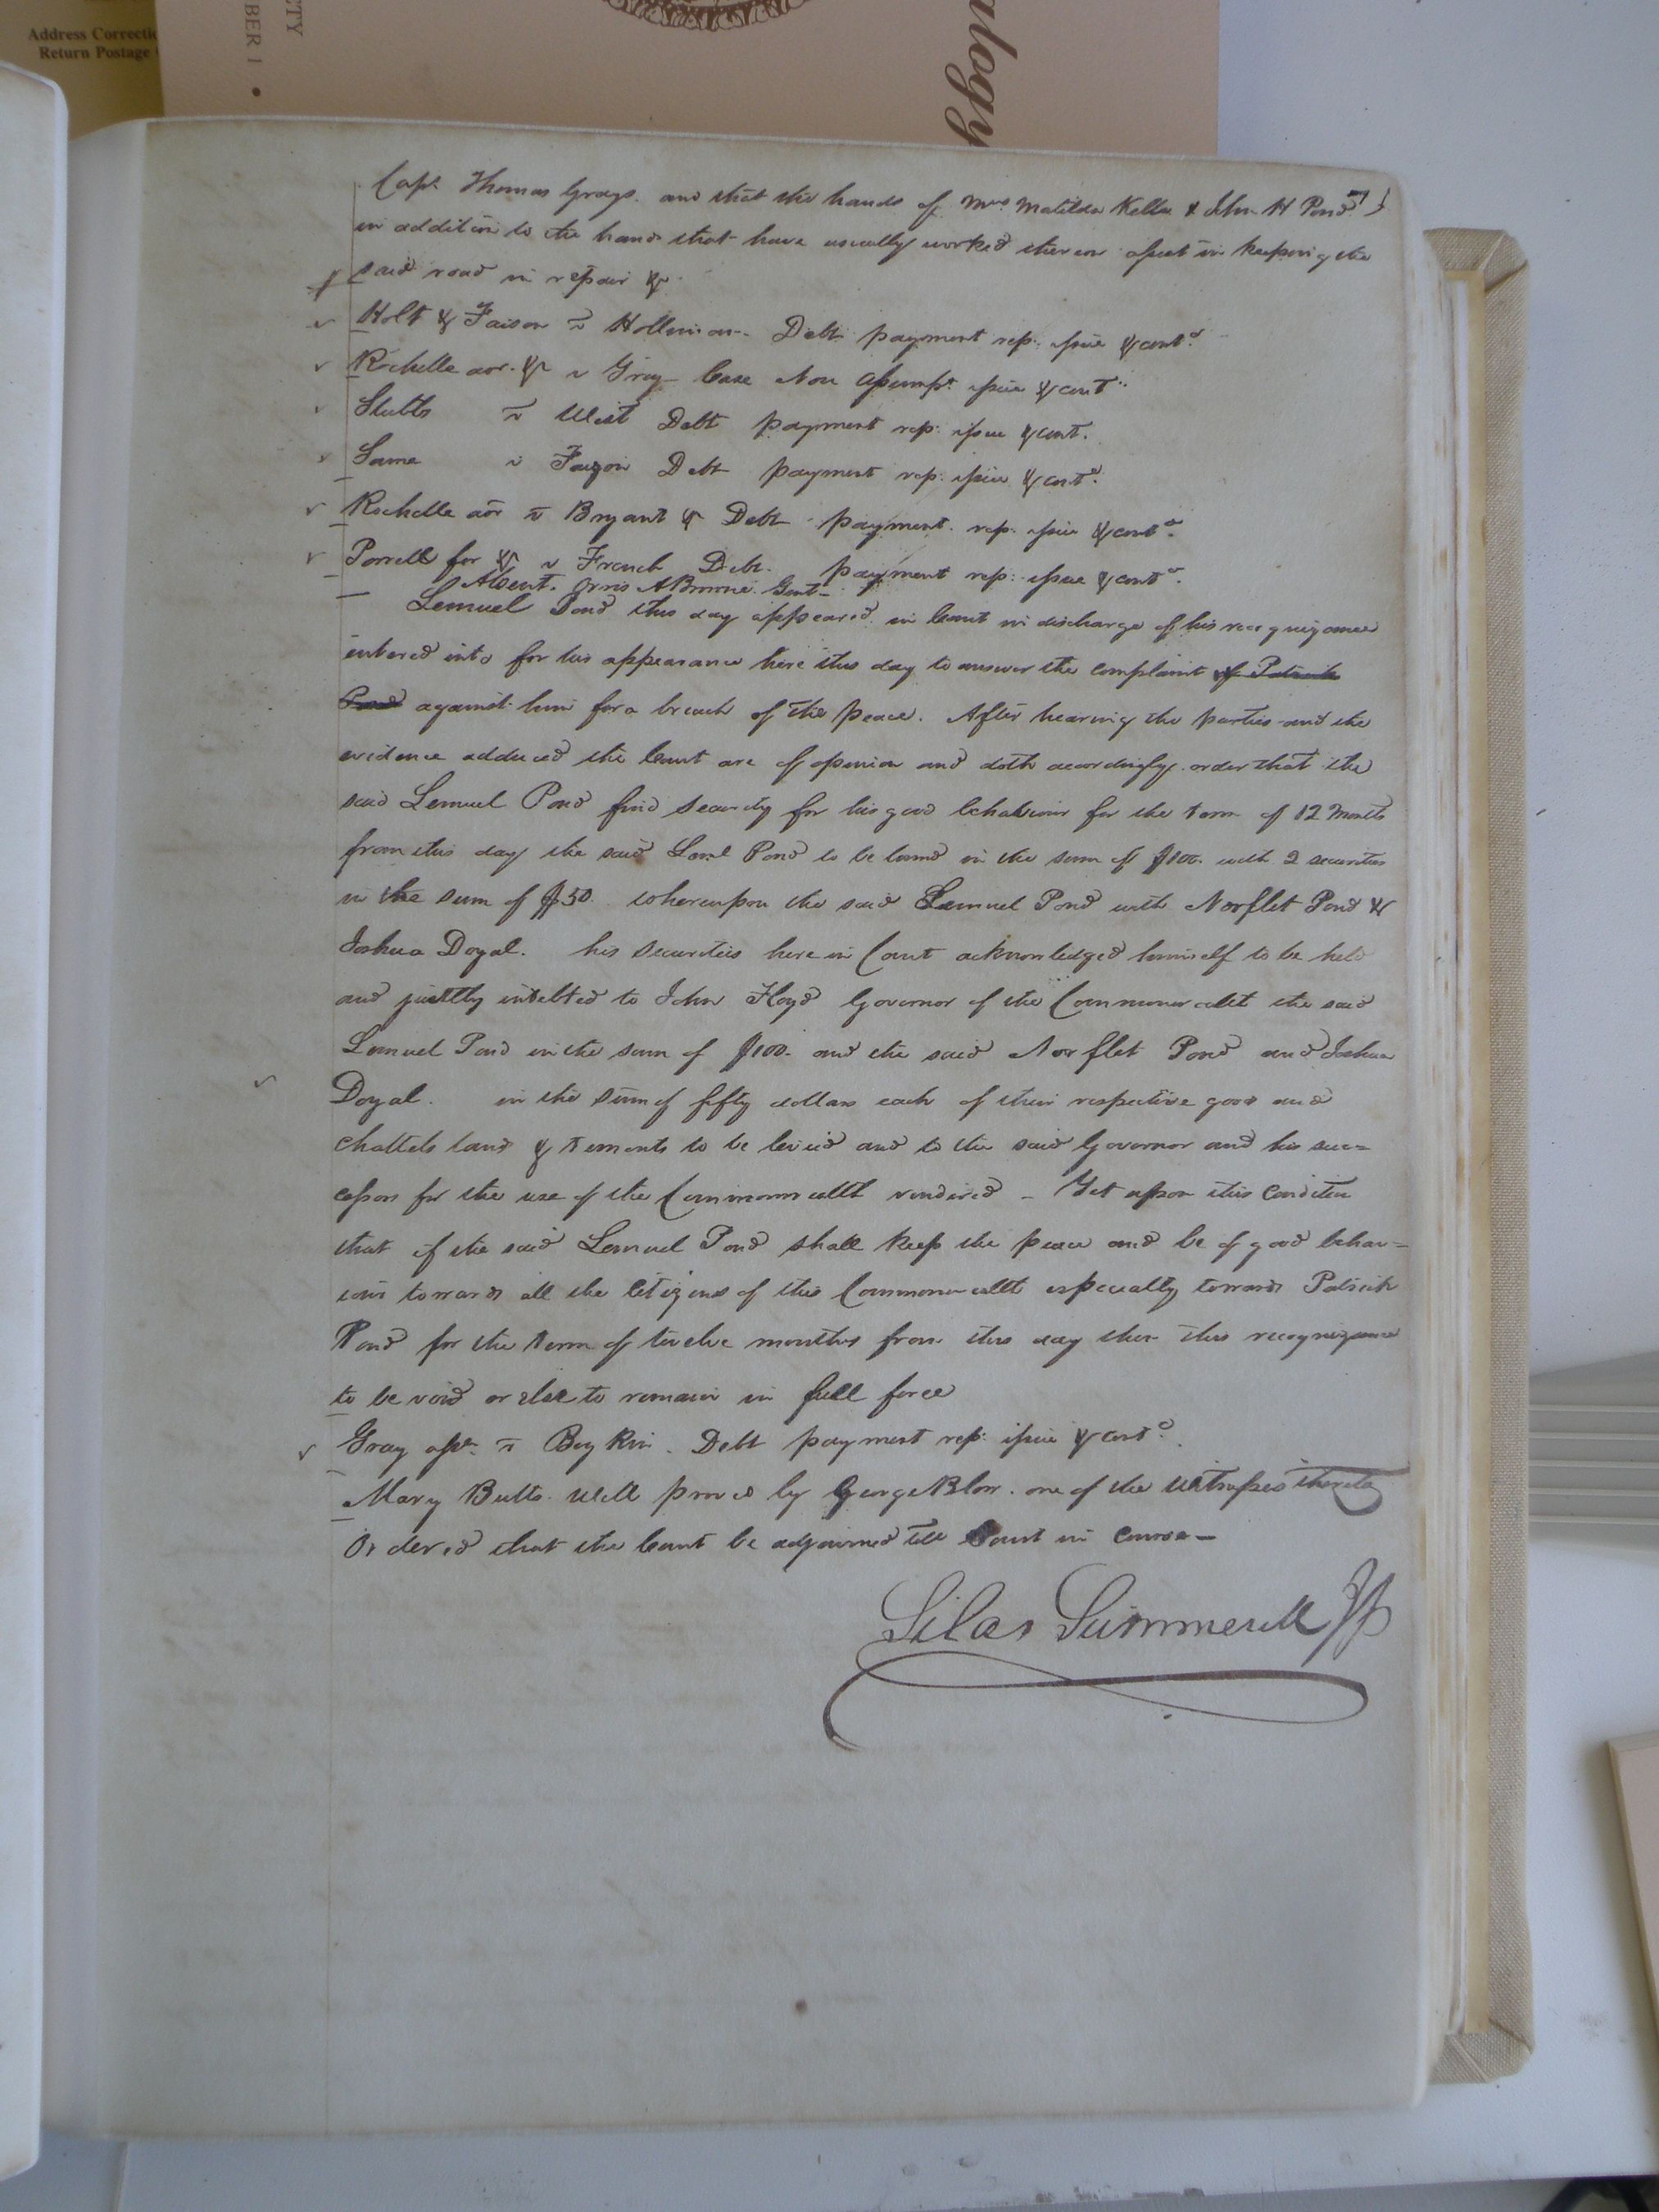 Address Correctio
Return Postage
CTY
BER 1 •
ulogy
Capt Thomas Grays. and that the hands of Mrs Matilda Kello & John H Pond
in addition to the hands that have usually worked thereon assist in keeping the
said road in repair &c
Holt & Faison v Holleman Debt payment rep: issue & contd
Rochelle aor. &c v Gray Case Non assumpt issue & cont
Stubbs v West Debt payment rep: issue & cont.
Same v Debt payment rep: issue & contd.
Rochelle aor v Bryant &c Debt payment. rep. issue & contd.
Porrell for &c v French Debt. payment rep: issue & contd.
Absent. Orris A Browne. Gent
Lemuel Pond this day appeared in Court in discharge of his recognizance
entered into for his appearance here this day to answer the complaint of Patrick
Pond against him for a breach of the peace. After hearing the parties and the
evidence adduced the Court are of opinion and doth accordingly order that the
said Lemuel Pond find security for his good behaviour for the term of 12 months
from this day the said Leml Pond to be bound in the sum of $100. with 2 securities
in the sum of $50 whereupon the said Lemuel Pond with Norflet Pond &
Joshua Doyal. his securities here in Court acknowledged himself to be held
and justly indebted to John Floyd Governor of the Commonwealt the said
Lemuel Pond in the sum of $100. and the said Norflet Pond and Joshua
Doyal. in the sum of fifty dollars each of their respective good and
Chattels land & tements to be levied and to the said Governor and his suc=
cessors for the use of the Commonwealth rendered – Yet upon this Condition
that if the said Lemuel Pond shall keep the peace and be of good behav=
iour towards all the Citizens of this Commonwealth especially towards Patrick
Pond for the term of twelve months from this day then this recognizance
to be void or else to remain in full force
Gray v Boykin. Debt payment rep: issue & contd.
Mary Butts. Will proved by George Blow. one of the witnesses thereto
Ordered that the Court be adjourned till Court in Course –
Silas Summerell JP